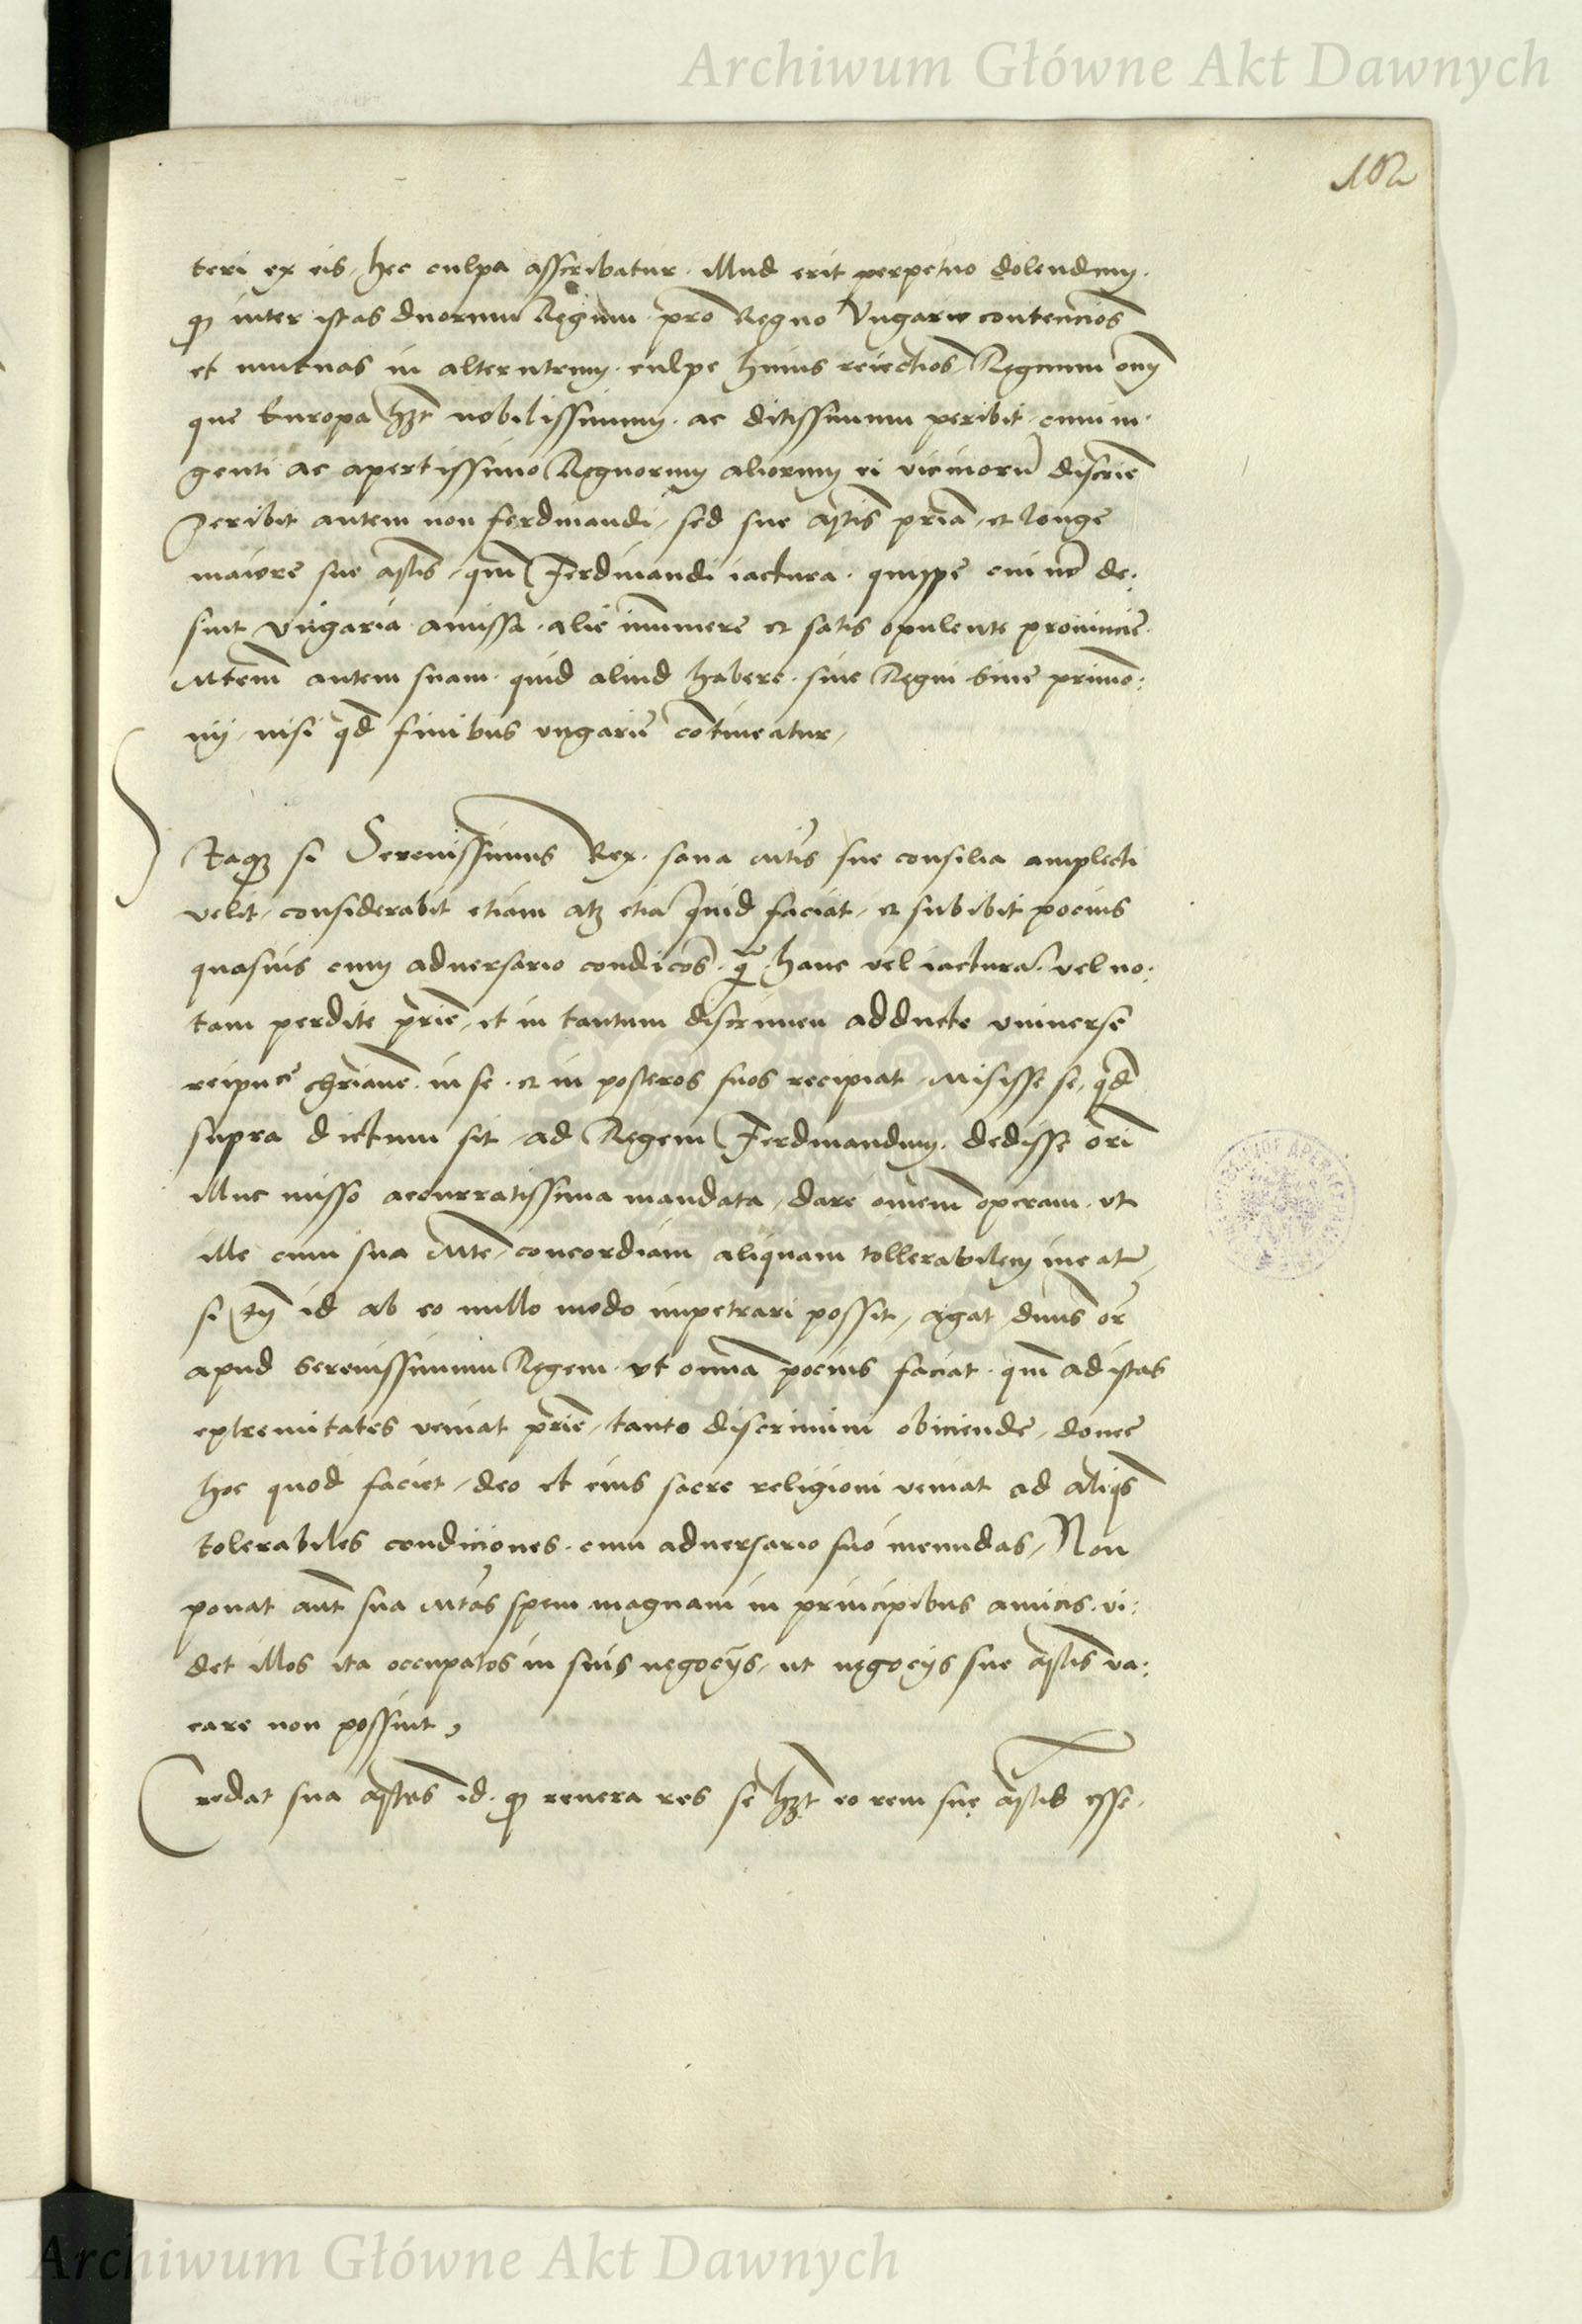 Archiwum Główne Akt Dawnych
102
teri ex eis, hec culpa asscribatur. illud erit perpetuo dolendum.
qz inter istas duorum Regum pro Regno Vngarie contencios
et mutuas in alterutrum culpe huius reiectios, Regnum oim
que Europa hzt nobilissimum. ac ditissimum peribit, cum in:
genti ac apertissimo Regnorum aliorum ei vicinorum discrie
Peribit autem non ferdinandi, sed sue Mtis pria, et longe
maiore sue Mtis, qm Ferdinandi iactura. quippe cui no de:
sint Vngaria amissa. alie innumere et satis opulente prouincie.
Mtem autem suam. quid aliud habere. siue Regni siue primo:
nij, nisi qd finibus vngarie contineatur,
Itaqz si Serenissimus Rex. sana Mtis sue consilia amplecti
velit, considerabit etiam atqz etia quid faciat, et subibit pocius
quasuis cum aduersario condicos. q hanc vel iactura. vel no:
tam perdite prie, et in tantum discrimen adducte vniuerse
reipuce chriane. in se. et in posteros suos recipiat. Misisse se, qd
supra dictum sit, ad Regem Ferdinandum. dedisse ori
illuc misso accurratissima mandata, dare omnem operam. vt
ille cum sua Mte, concordiam aliquam tollerabilem ineat,
si tn id ab eo nullo modo impetrari possit, agat dnus or
apud serenissimum Regem. vt omnia pocius faciat. qm ad istas
extremitates veniat prie, tanto discrimini obiciende, donec
hoc quod faciet, deo et eius sacre religioni veniat ad aliqs
tolerabiles condiciones. cum aduersario suo ineundas, Non
ponat aut sua Mtas spem magnam in principibus amicis. vi:
det illos ita occupatos in suis negocijs, ut negocijs sue Mtis va:
care non possint,
Credat sua Mtas id. qz reuera res se hzt eo rem sue Mtis esse.
Archiwum Główne Akt Dawnych